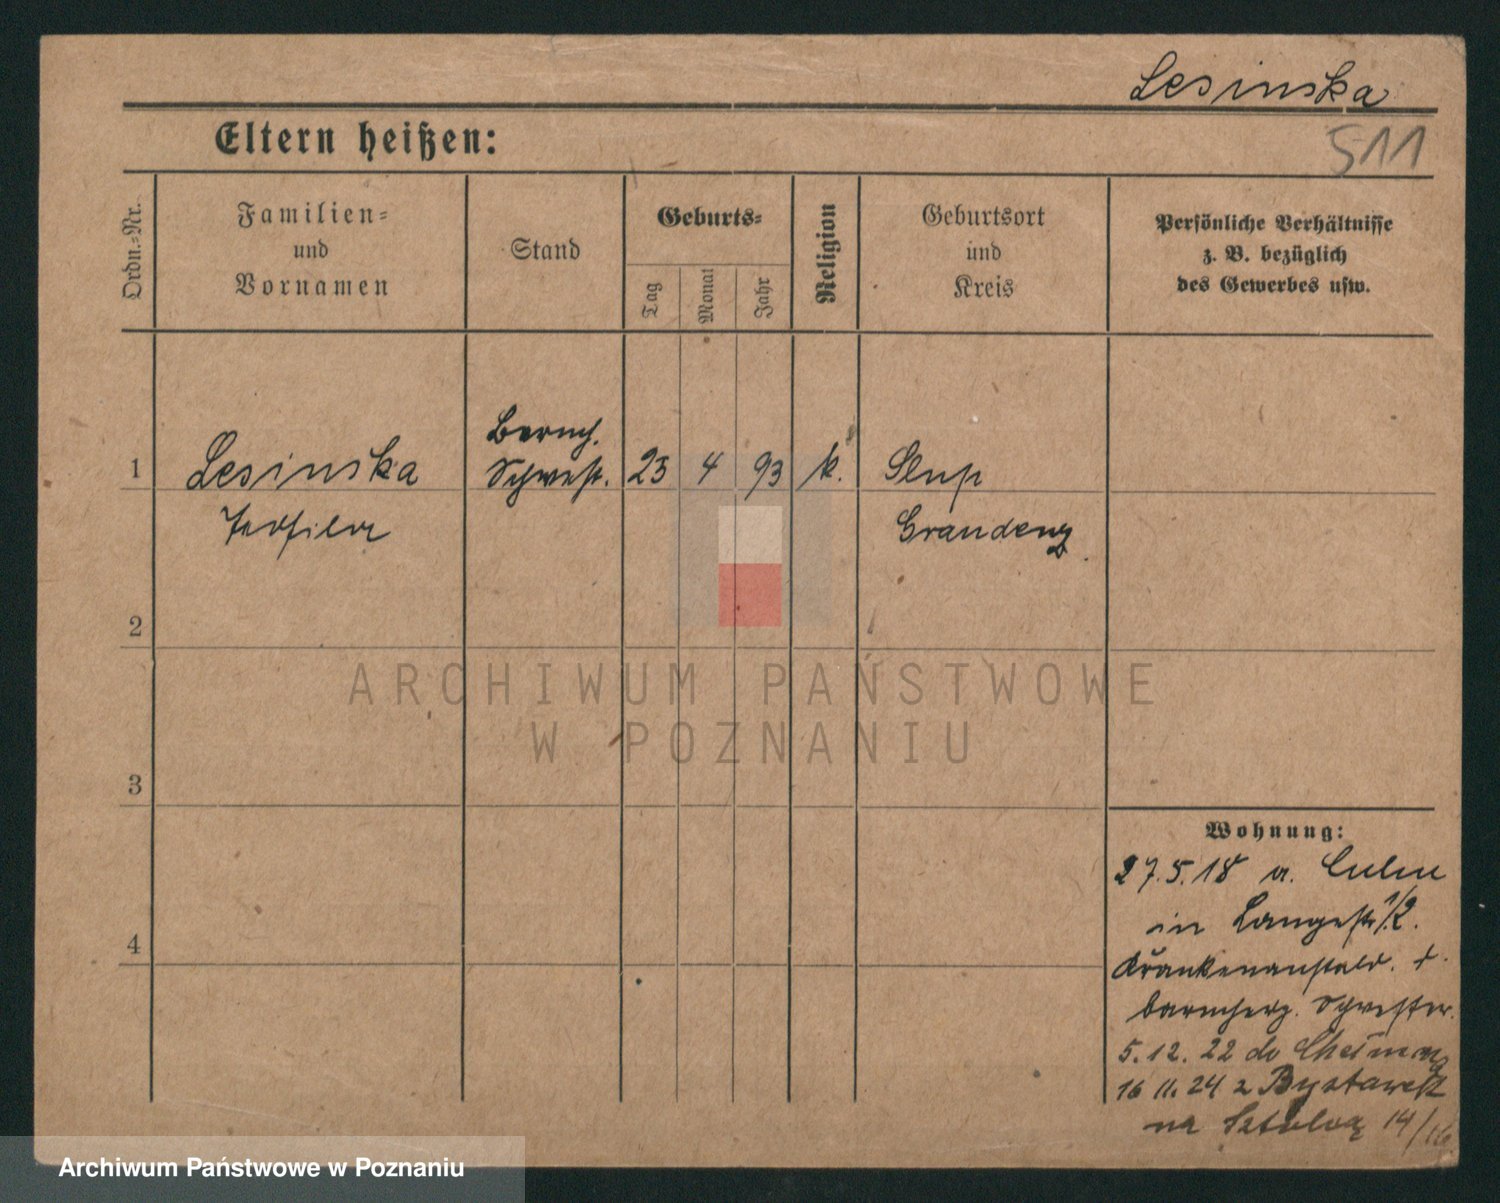 Lesinska
Eltern heißen:
511
Ordn.-Nr.
Familien-
und
Vornamen
Stand
Geburts-
Tag
Monat
Jahr
Religion
Geburtsort
und
Kreis
Persönliche Verhältnisse
z. B. bezüglich
des Gewerbes usw.
Barmh.
1 Lesinska Schwest. 23 4 93 k. Slup
Teofila Graudenz
2
3
4
Wohnung:
27.5.18 a. Culm
in Langestr 1/2.
Krankenanstalt. d.
barmherz. Schwester.
5.12.22 do Chełmna
16 11. 24 z
na Szkolną 14/16
ARCHIWUM PAŃSTWOWE
W POZNANIU
Archiwum Państwowe w Poznaniu